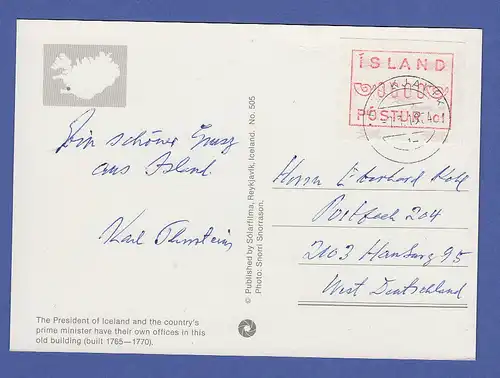 ÍSLAND
PÓSTUR
Ein schöner Gruß
aus Island.
Karl
© Published by Sólarfilma, Reykjavik, Iceland. No. 505
Photo: Snorri Snorrason.
Herrn Eberhard Kohl
Postfach 204
2103 Hamburg 95
West Deutschland
The President of Iceland and the country's
prime minister have their own offices in this
old building (built 1765—1770).